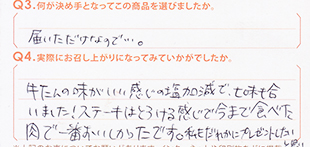 Q3.何が決め手となってこの商品を選びましたか。
届いただけなので…。
Q4.実際にお召し上がりになってみていかがでしたか。
牛たんの味がいい感じの塩加減で、七味も合
いました!ステーキはとろける感じで今まで食べた
肉で一番おいしかったです。私もだれかにプレゼントしたい
と思い